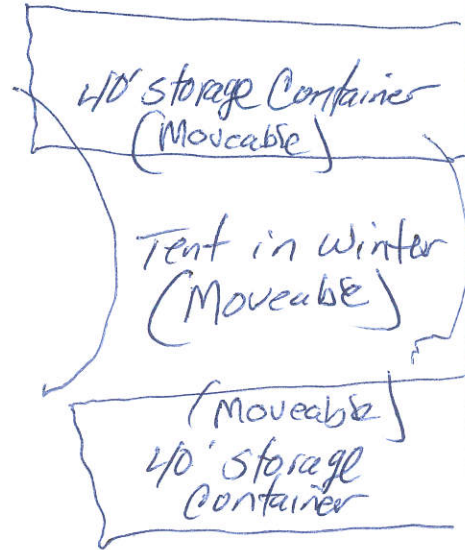 40' Storage Container
(Moveable)
Tent in Winter
(Moveable)
(Moveable)
40' Storage
Container